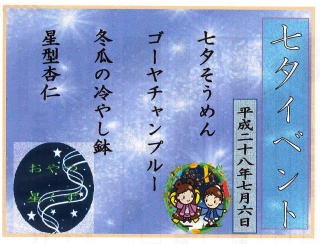 七夕イベント
平成二十八年七月六日
七夕そうめん
ゴーヤチャンプルー
冬瓜の冷やし鉢
星型杏仁